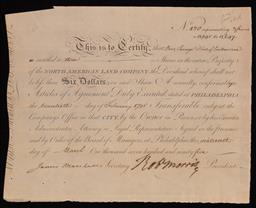 This is to Certify, that
is entitled to
Share in the entire Property
of the NORTH AMERICAN LAND COMPANY, the Dividend whereof shall not
be less than Six Dollars on each Share Annually, conformably to
Articles of Agreement Duly Executed, dated at PHILADELPHIA
the twentieth day of February 1795 Transferable only at the
Company's Office in that CITY, by the Owner in Person or by his Executor
Administrator, Attorney or Legal Representative. Signed in the presence
and by Order of the Board of Managers, at PHILADELPHIA
day of March One thousand seven hundred and ninety five
James Marshall Secretary Rob Morris President